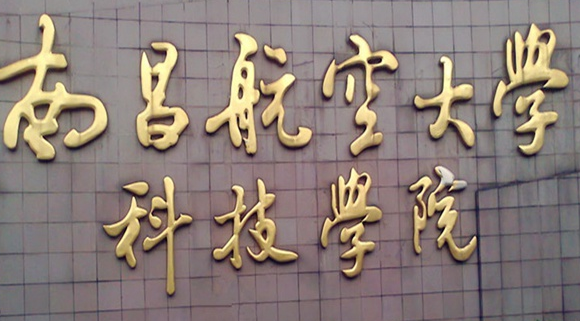 南昌航空大學
科技學院